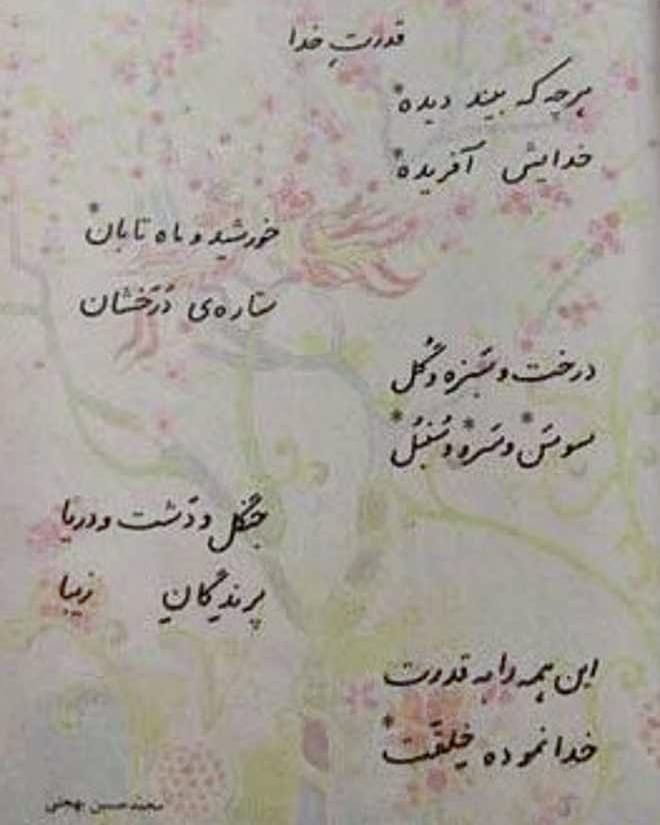 قدرتِ خدا
هرچه که بیند دیده*
خدایش آفریده*
خورشید و ماه تابان*
ستاره‌ی دُرَخشان
درخت و سَبزه و گُل
سوسَن* و سَرو* و سُنبُل*
جنگل و دَشت و دریا
پرندِگانِ زیبا
این همه را به قدرت
خدا نموده خِلقَت*
محمدحسن بهجتی